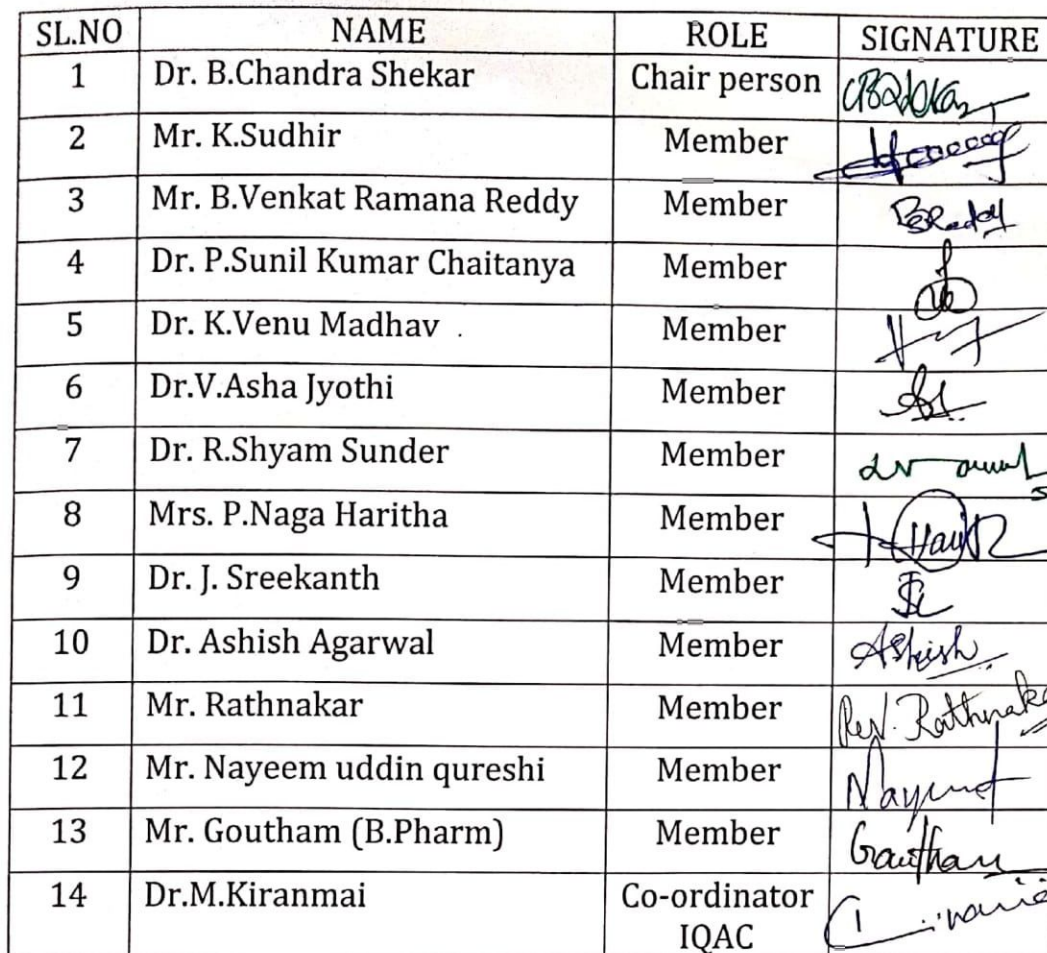 SL.NO NAME ROLE SIGNATURE
1 Dr. B.Chandra Shekar Chair person
2 Mr. K.Sudhir Member
3 Mr. B.Venkat Ramana Reddy Member BSReddy
4 Dr. P.Sunil Kumar Chaitanya Member
5 Dr. K.Venu Madhav Member
6 Dr.V.Asha Jyothi Member
7 Dr. R.Shyam Sunder Member
8 Mrs. P.Naga Haritha Member
9 Dr. J. Sreekanth Member
10 Dr. Ashish Agarwal Member Ashish
11 Mr. Rathnakar Member Rev. Rathnaka
12 Mr. Nayeem uddin qureshi Member
13 Mr. Goutham (B.Pharm) Member
14 Dr.M.Kiranmai Co-ordinator
IQAC